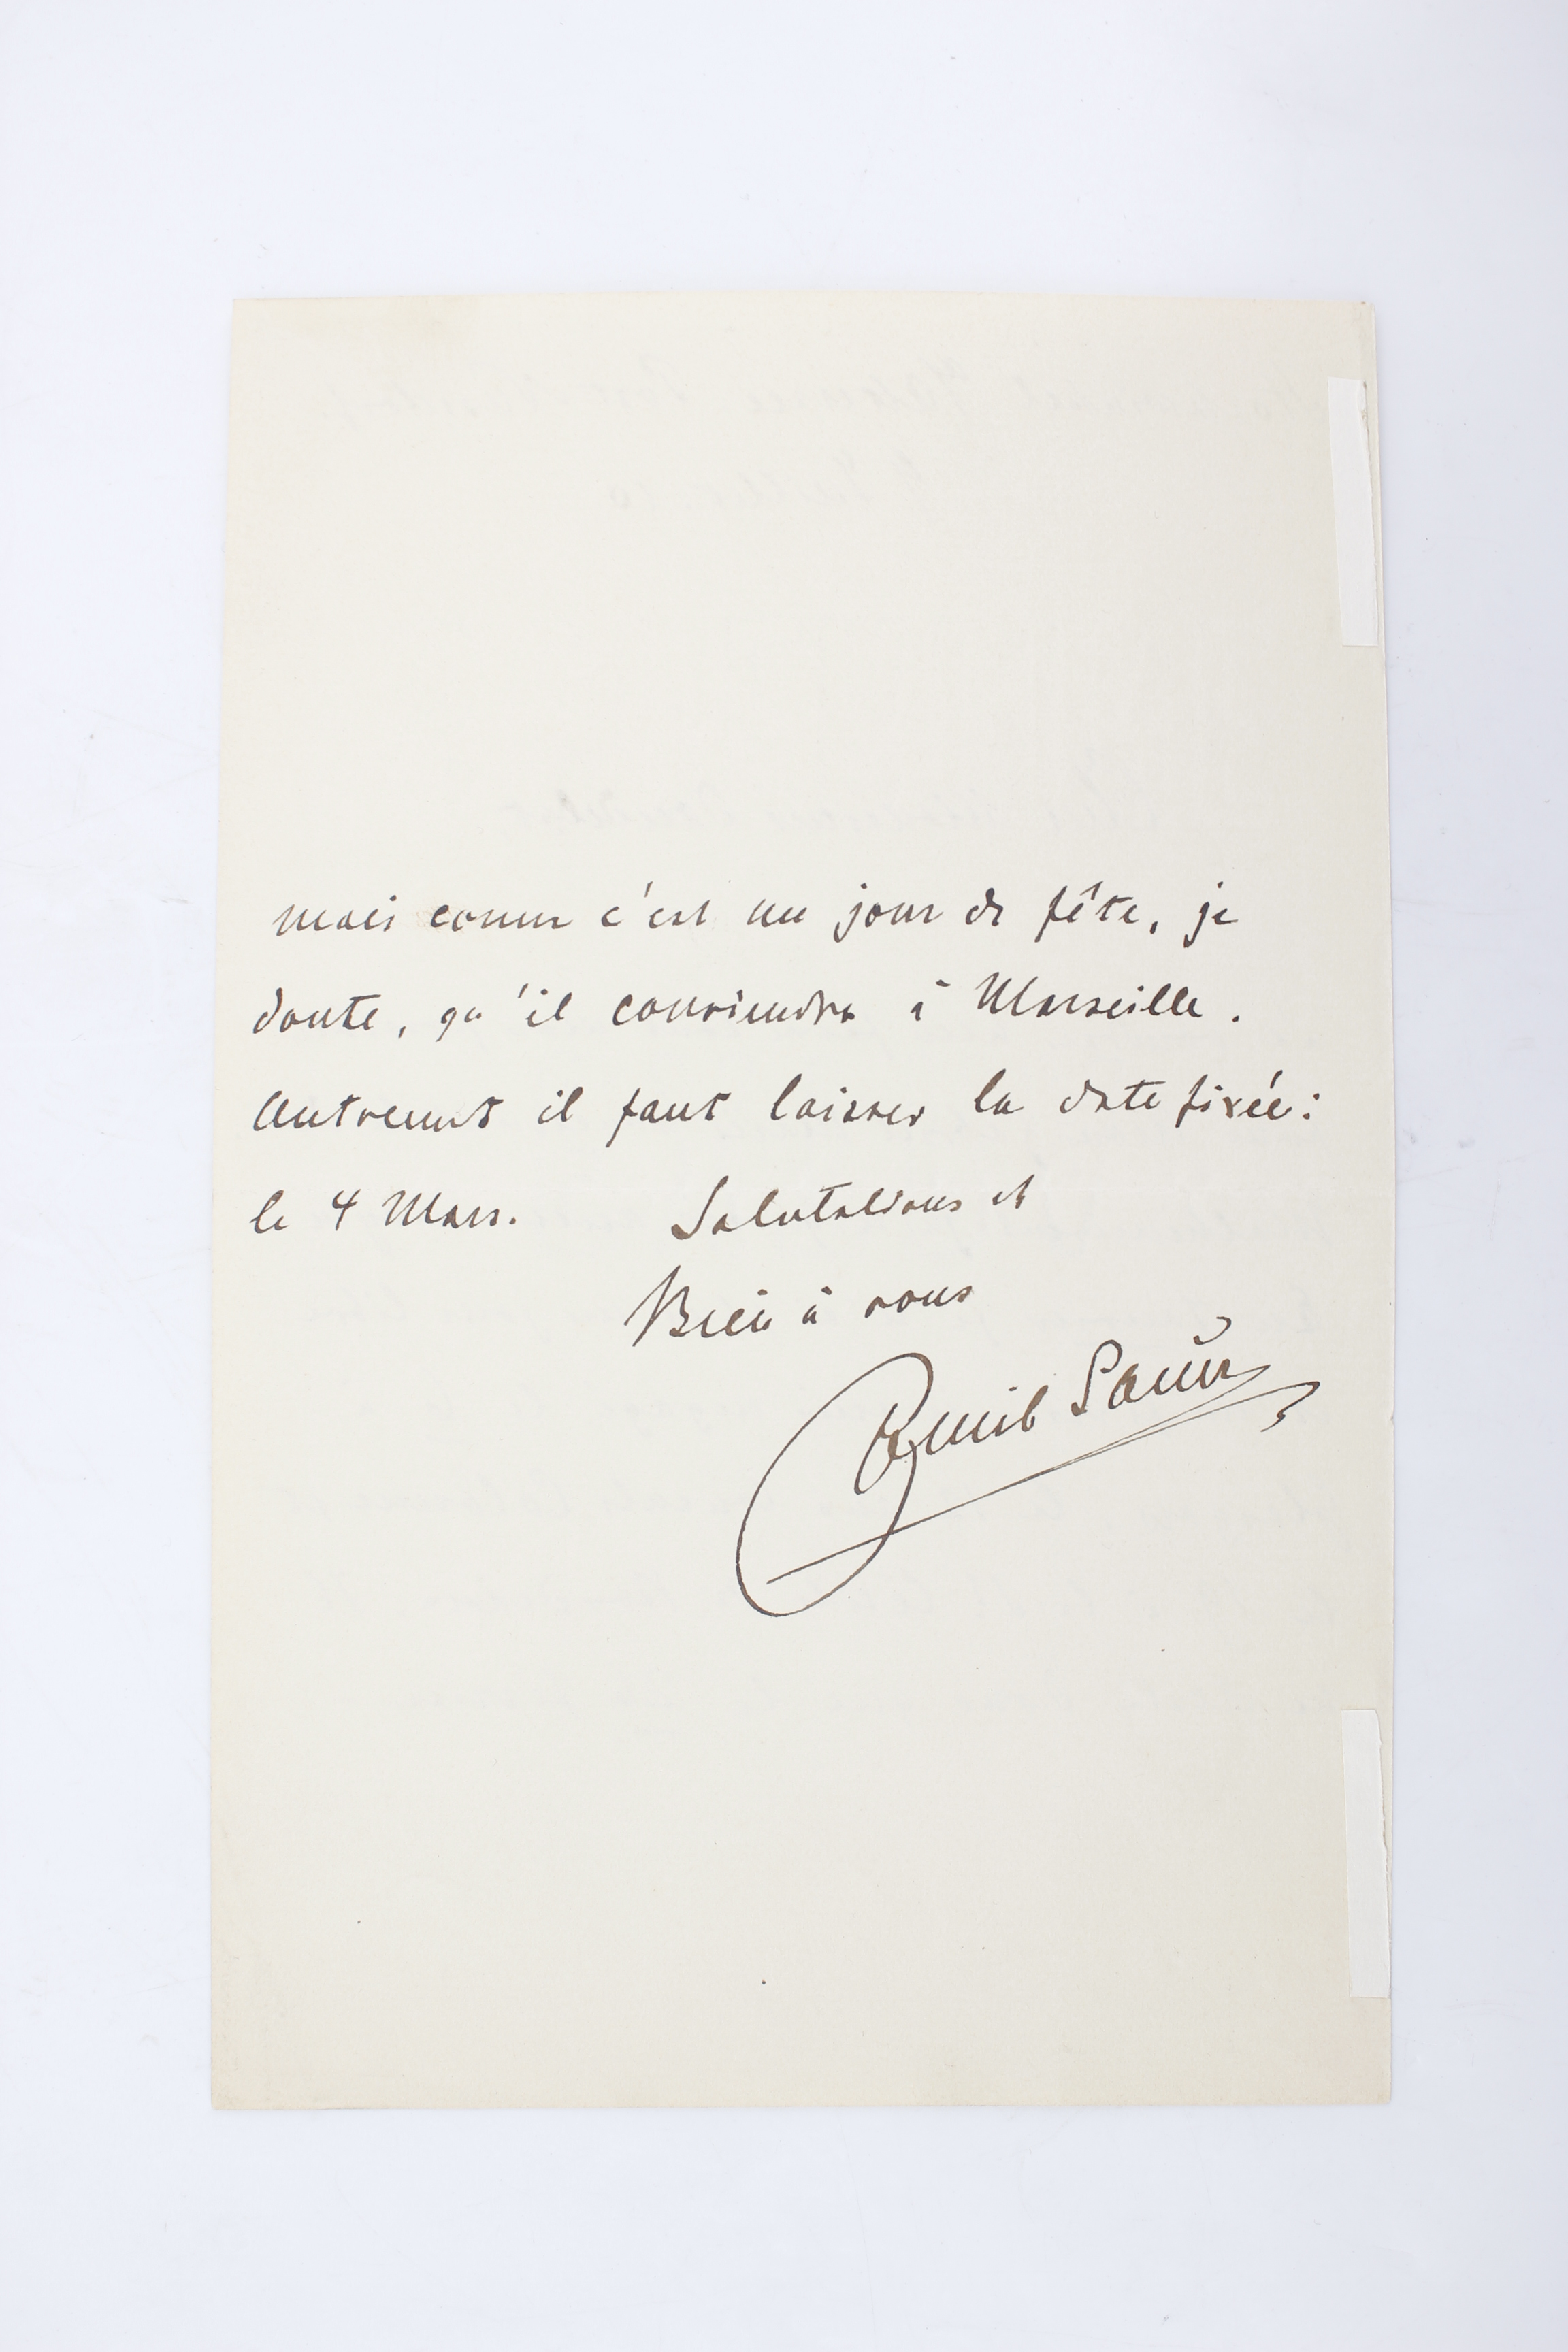 mais comme c'est un jour de fête, je
doute, qu'il conviendra à Marseille.
Autrement il faut laisser la date fixée:
le 4 Mars. Salutations et
Bien à vous
Emil Sauer